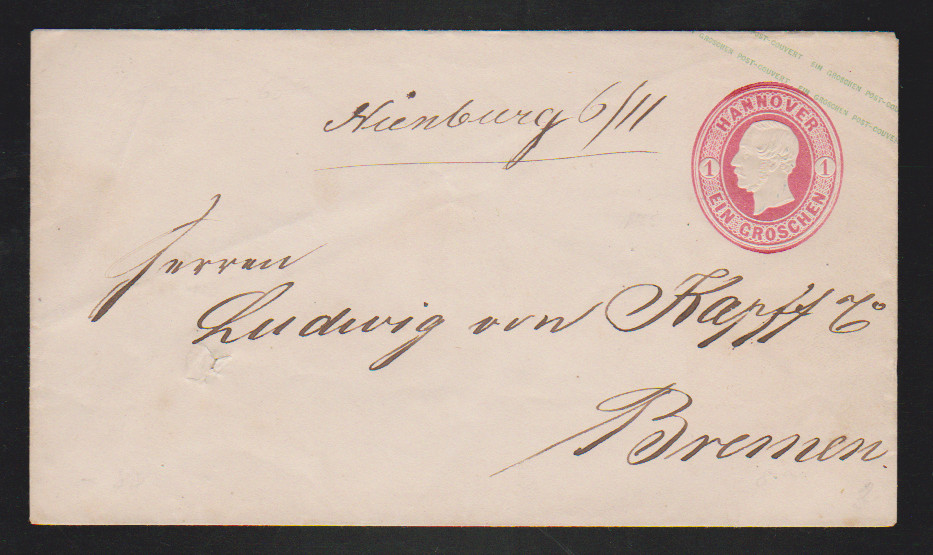 GROSCHEN POST-COUVERT EIN GROSCHEN POST-COUVERT
POST-COUVERT EIN GROSCHEN POST-COU
Nienburg 6/11
HANNOVER
1 1
EIN GROSCHEN
Herren
Ludwig von Kapff & Co
Bremen.